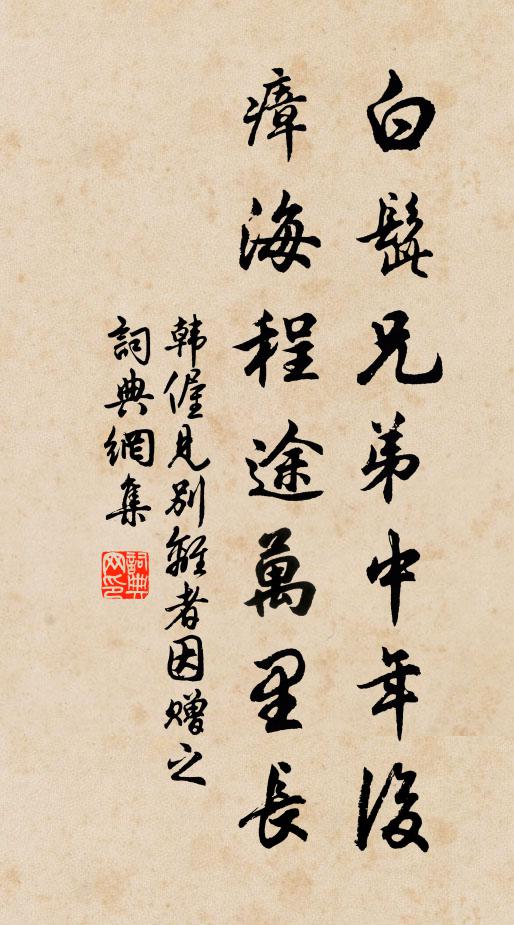 白髭兄弟中年後
瘴海程途萬里長
韩偓見別離者因赠之
詞典網集
詞典
网印